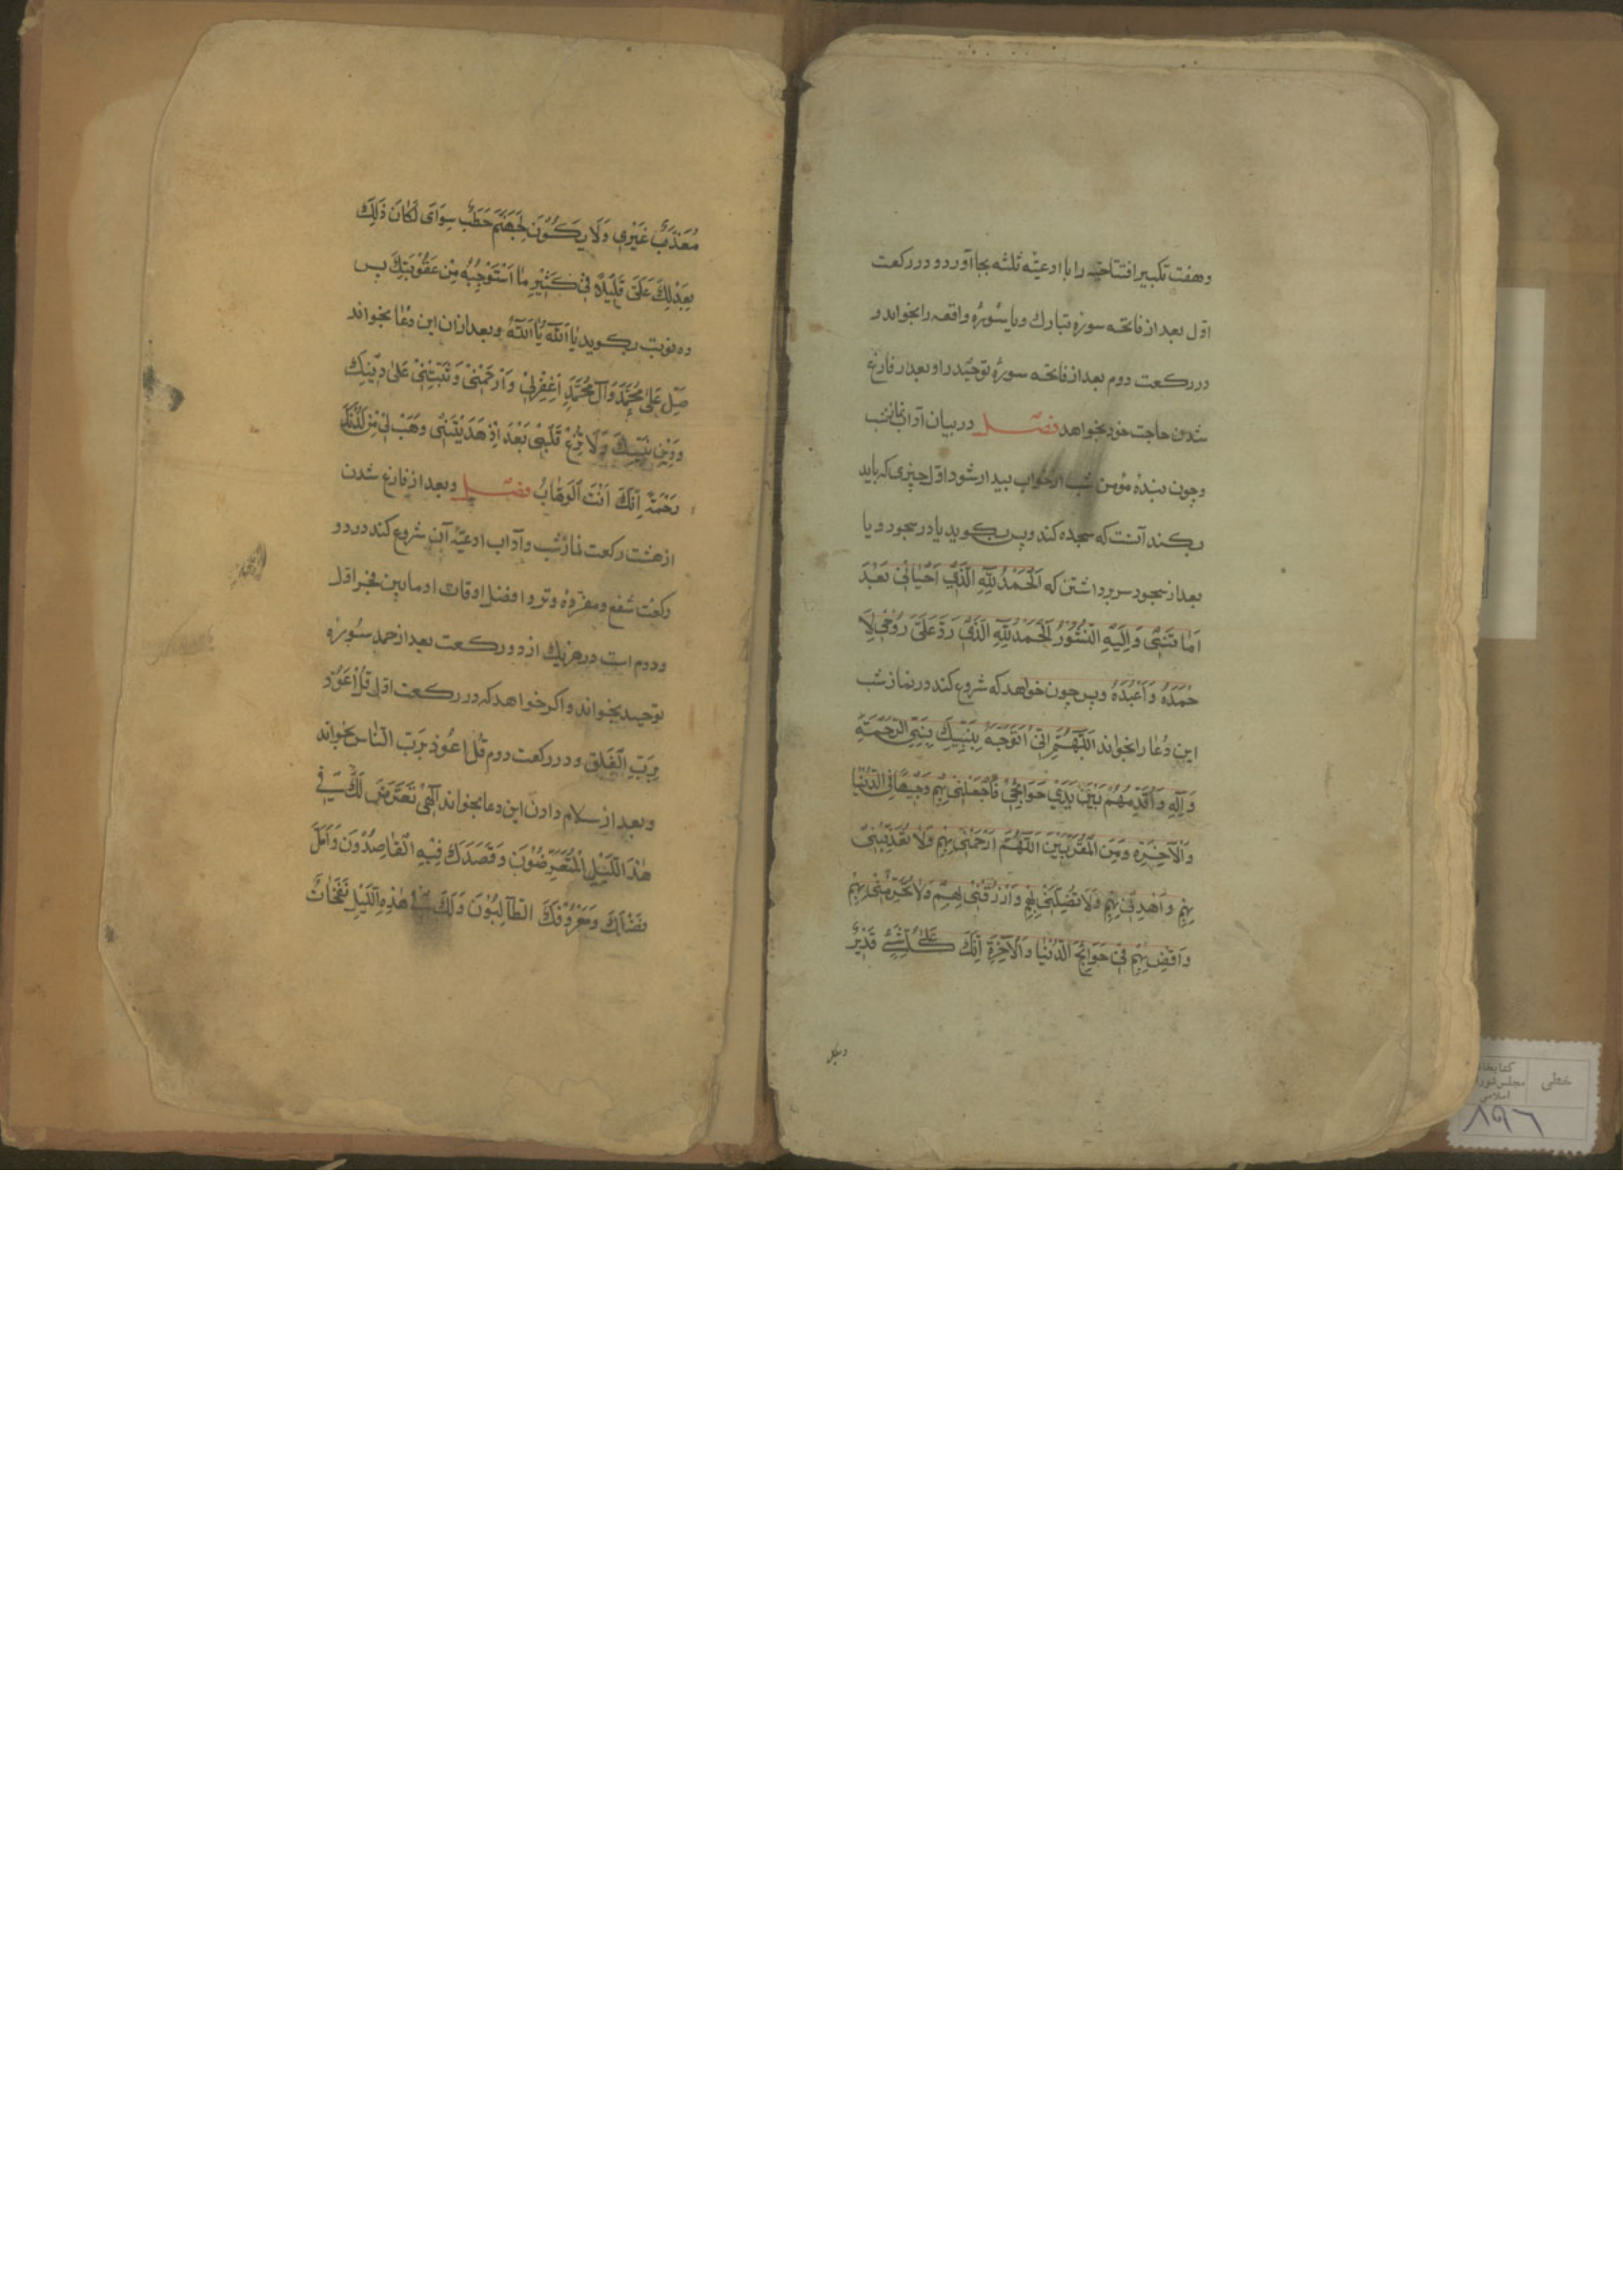 وهفت تکبیر افتتاحیّه را با ادعیّه ثلثه بجا آورد و در رکعت
اوّل بعد از فاتحه سوره تبارك ویا سُورهٔ واقعه را بخواند و
در رکعت دوم بعد از فاتحه سورهٔ توحیدرا و بعد از فارغ
شدن حاجت خود بخواهد فصل در بیان آداب نماز شب
وچون بندهٔ مؤمن شب از خواب بیدار شود اوّل چیزی که باید
بکند آنست که سجده کند وپس بکوید یا در سجود و یا
بعد از سجود سر برداشتن که اَلْحَمْدُ لِلّٰهِ الَّذِي اَحْیٰانِي بَعْدَ
اَمٰا تَنِي وَاِلَیْهِ النُّشُوْرُ اَلْحَمْدُ لِلّٰهِ الَّذِي رَدَّ عَلَيَّ رُوْحِي لِاَ
حْمَدَهُ وَاَعْبُدَهُ وپس چون خواهد که شروع کند در نماز شب
این دُعٰا را بخواند اَللّٰهُمَّ اِنِّي اَتَوَجَّهُ بِنَبِیِّكَ نَبِيِّ الرَّحْمَةِ
وَآلِهِ وَاُقَدِّمُهُمْ بَیْنَ یَدَيْ حَوَائِجِيْ فَاجْعَلْنِي بِهِمْ وَجِیْهًا فِي الدُّنْیٰا
وَالْآخِرَةِ وَمِنَ الْمُقَرَّبِیْنَ اَللّٰهُمَّ ارْحَمْنِي بِهِمْ وَلٰا تُعَذِّبْنِي
بِهِمْ وَاهْدِنِي بِهِمْ وَلَا تُضِلَّنِي بِهِمْ وَارْزُقْنِي بِهِمْ وَلٰا تَحْرِمْنِي بِهِمْ
وَاقْضِ بِهِمْ فِيْ حَوَائِجَ الدُّنْیٰا وَالْآخِرَةِ اِنَّكَ عَلیٰ کُلِّ شَيْءٍ قَدِیْرٌ
خطی
کتابخانه
مجلس شورا
اسلامی
۸۹۶
مُعَذَّبٌ غَیْرِي وَلَا یَکُوْنَ لِجَهَنَّمَ حَطَبٌ سِوَايَ لَکَانَ ذٰلِكَ
بِعَدْلِكَ عَلَيَّ قَلِیْلًا فِيْ کَثِیْرِ مٰا اَسْتَوْجِبُهُ مِنْ عَقُوْبَتِكَ پس
ده نوبت بکوید یٰا اَللّٰهُ یٰا اَللّٰهُ وبعد ازان این دُعٰا بخواند
صَلِّ عَلیٰ مُحَمَّدٍ وَآلِ مُحَمَّدٍ اِغْفِرْلِيْ وَارْحَمْنِيْ وَثَبِّتْنِيْ عَلیٰ دِیْنِكَ
وَدِیْنِ نَبِیِّكَ وَلَا تُزِغْ قَلْبِيْ بَعْدَ اِذْ هَدَیْتَنِيْ وَهَبْ لِيْ مِنْ لَدُنْكَ
رَحْمَةً اِنَّكَ اَنْتَ الْوَهّٰابُ فصل وبعد از فارغ شدن
از هشت رکعت نماز شب وآداب ادعیّهٔ آن شروع کند در دو
رکعت شفع ومفردهٔ وتر وافضل اوقات او مابین فجر اوّل
ودوم است در هر یك از دو رکعت بعد از حمد سُورهٔ
توحید بخواند واکر خواهد که در رکعت اوّل قُلْ اَعُوْذُ
بِرَبِّ الْفَلَقِ ودر رکعت دوم قُلْ اعُوذُ بِرَبِّ النّٰاسِ بخواند
وبعد از سلام دادن این دعا بخواند اِلٰهِي تَعَرَّضَ لَكَ فِي
هٰذَا اللَّیْلِ الْمُتَعَرِّضُوْنَ وَقَصَدَكَ فِیْهِ الْقٰاصِدُوْنَ وَاَمَّلَ
فَضْلَكَ وَمَعْرُوْفَكَ الطَّالِبُوْنَ وَلَكَ فِي هٰذِهِ اللَّیْلِ نَفَحٰاتٌ